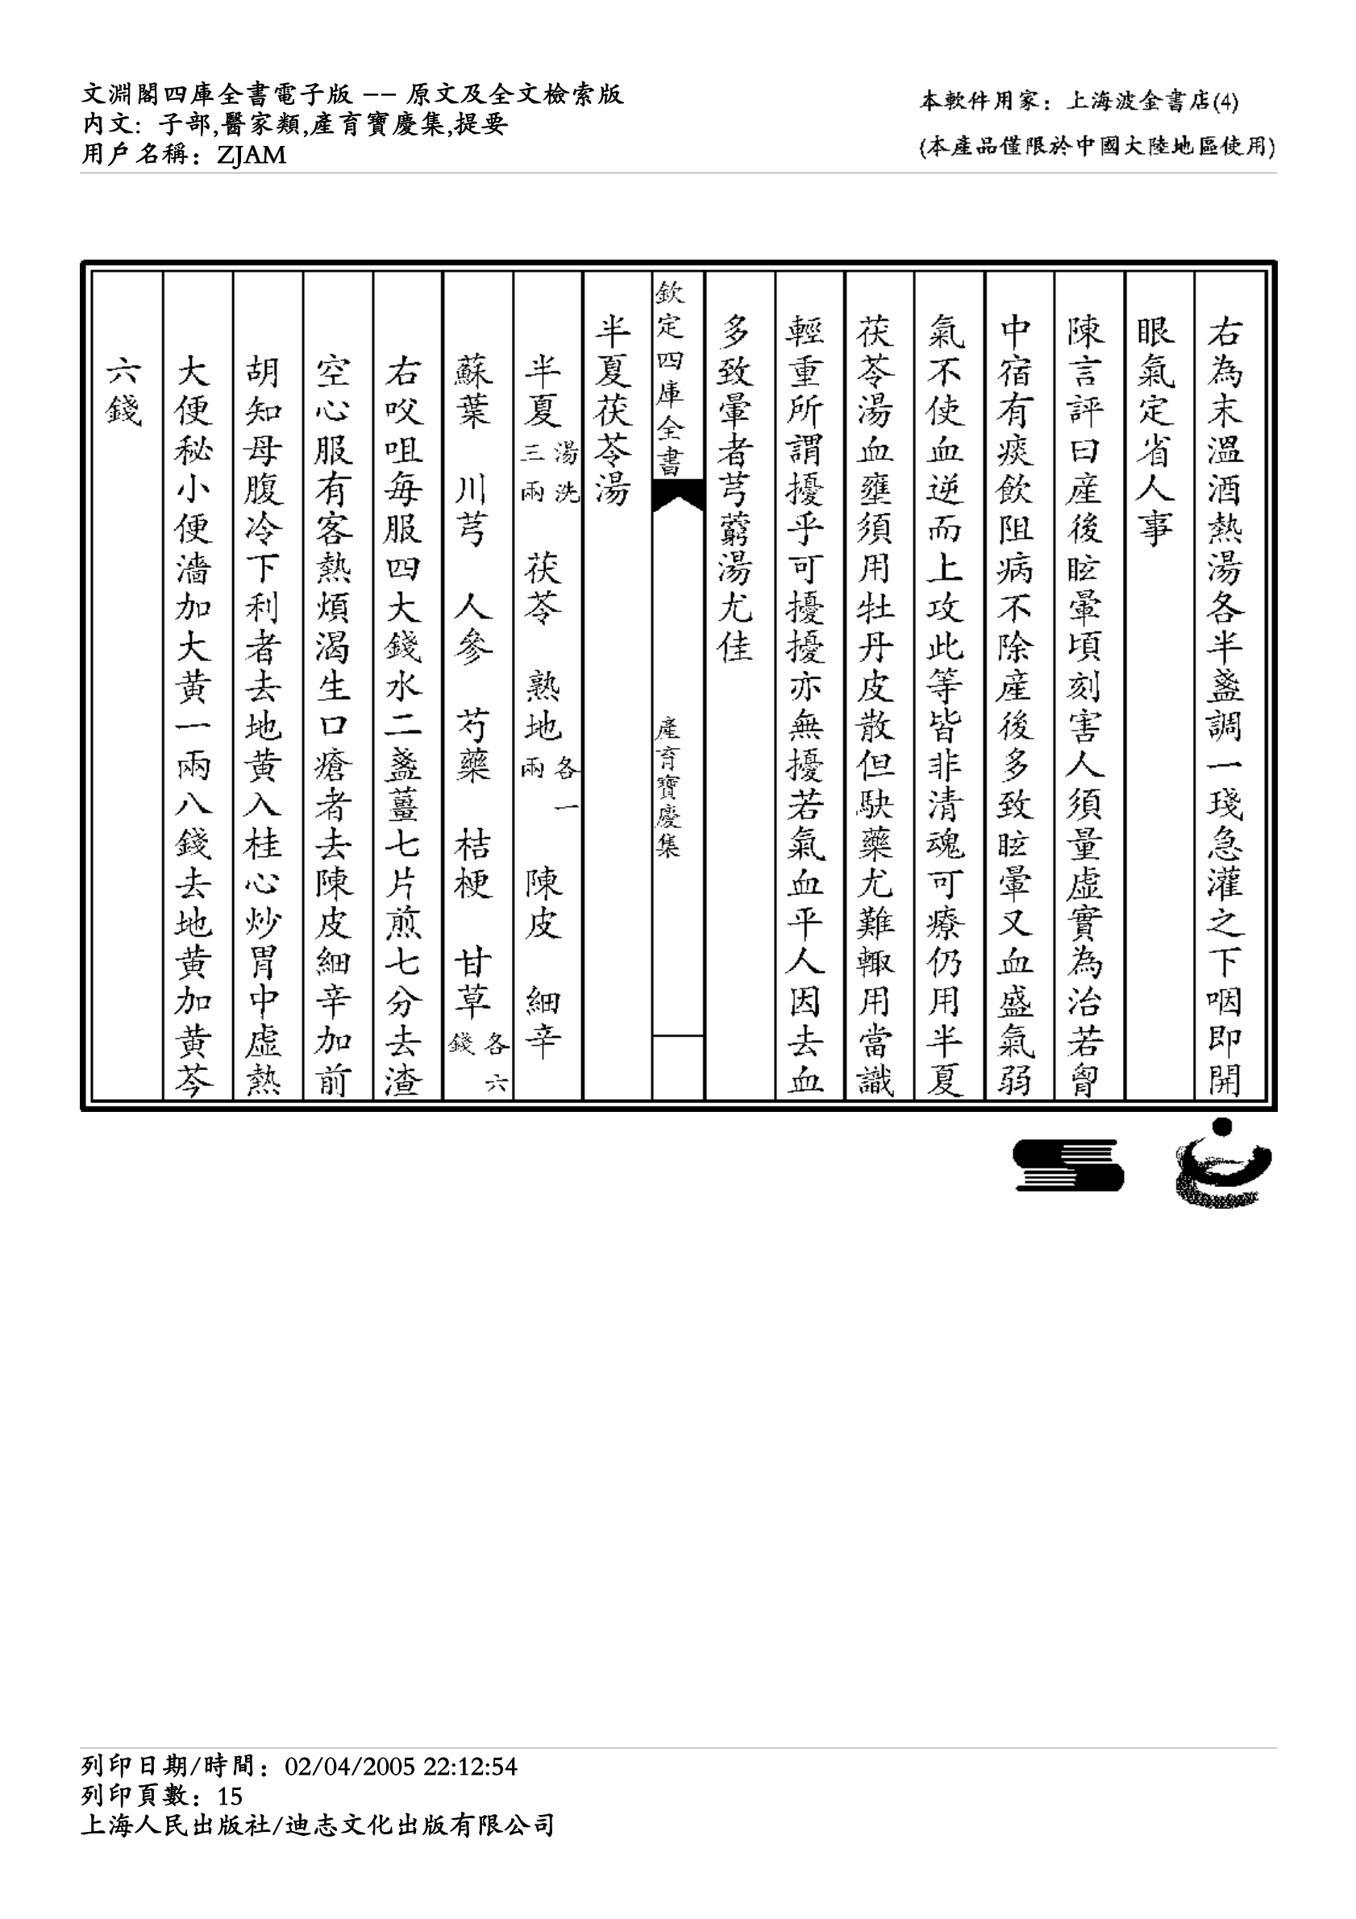 文淵閣四庫全書電子版 -- 原文及全文檢索版
內文: 子部,醫家類,產育寶慶集,提要
用戶名稱: ZJAM
本軟件用家: 上海波金書店(4)
(本產品僅限於中國大陸地區使用)
右為末溫酒熱湯各半盞調一琖急灌之下咽即開
眼氣定省人事
陳言評曰産後眩暈頃刻害人須量虛實為治若胷
中宿有痰飲阻病不除産後多致眩暈又血盛氣弱
氣不使血逆而上攻此等皆非清魂可療仍用半夏
茯苓湯血壅須用牡丹皮散但駃藥尤難輙用當識
輕重所謂擾乎可擾擾亦無擾若氣血平人因去血
多致暈者芎藭湯尤佳
欽定四庫全書 產育寶慶集
半夏茯苓湯
半夏湯洗三兩 茯苓 熟地各一兩 陳皮 細辛
蘇葉 川芎 人參 芍藥 桔梗 甘草各六錢
右㕮咀每服四大錢水二盞薑七片煎七分去渣
空心服有客熱煩渴生口瘡者去陳皮細辛加前
胡知母腹冷下利者去地黄入桂心炒胃中虛熱
大便秘小便濇加大黄一兩八錢去地黄加黄芩
六錢
列印日期/時間: 02/04/2005 22:12:54
列印頁數: 15
上海人民出版社/迪志文化出版有限公司